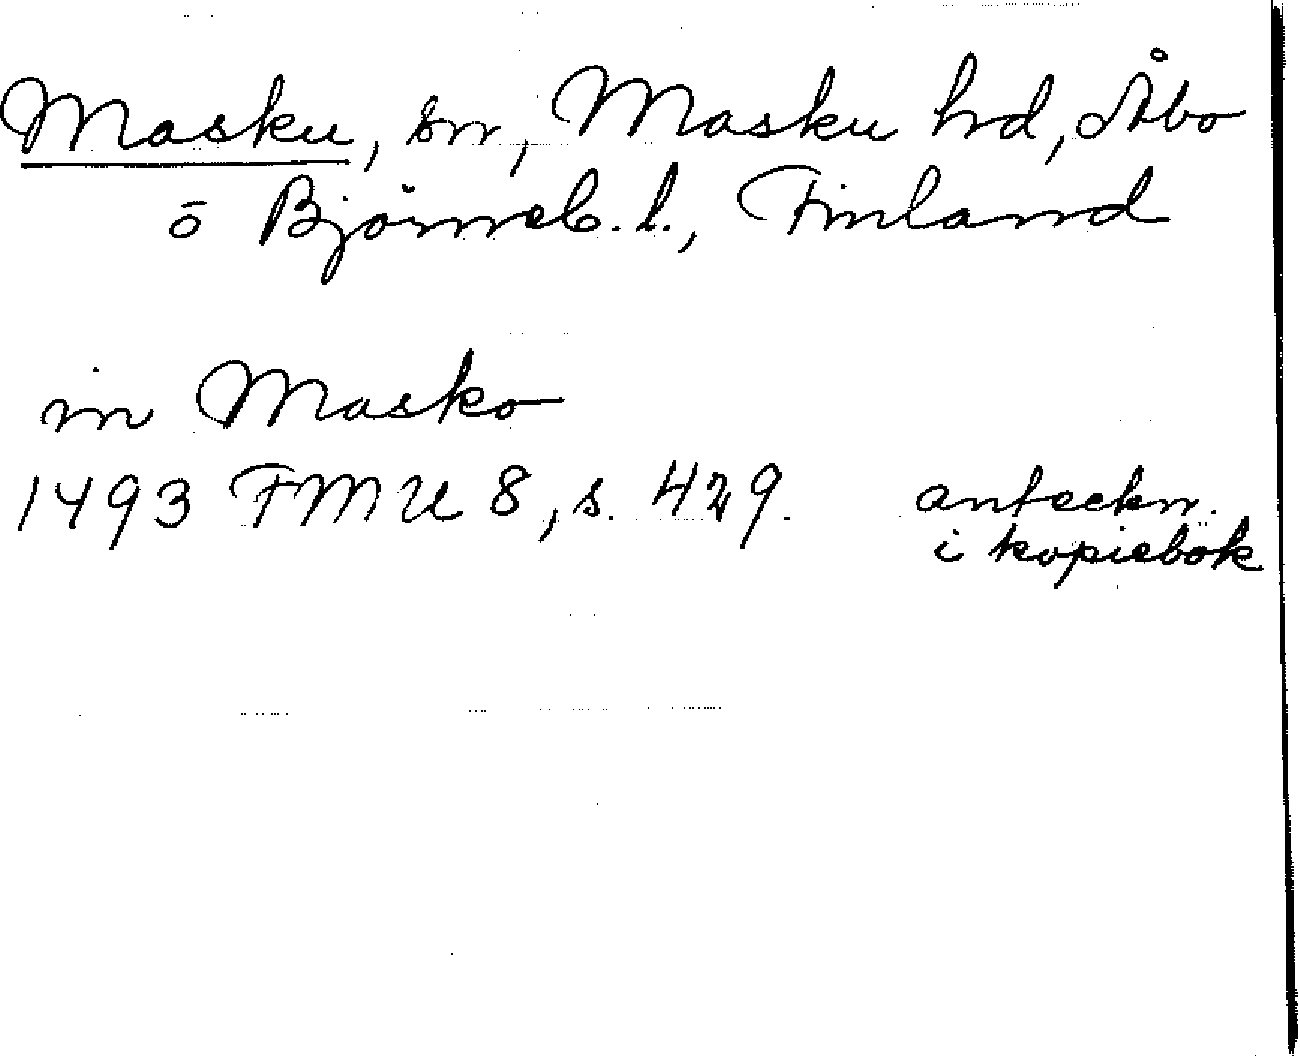 Masku, sn, Masku hd, Åbo
o Björneb. l., Finland
in Masko
1493 FMU 8, s. 429. anteckn.
i kopiebok